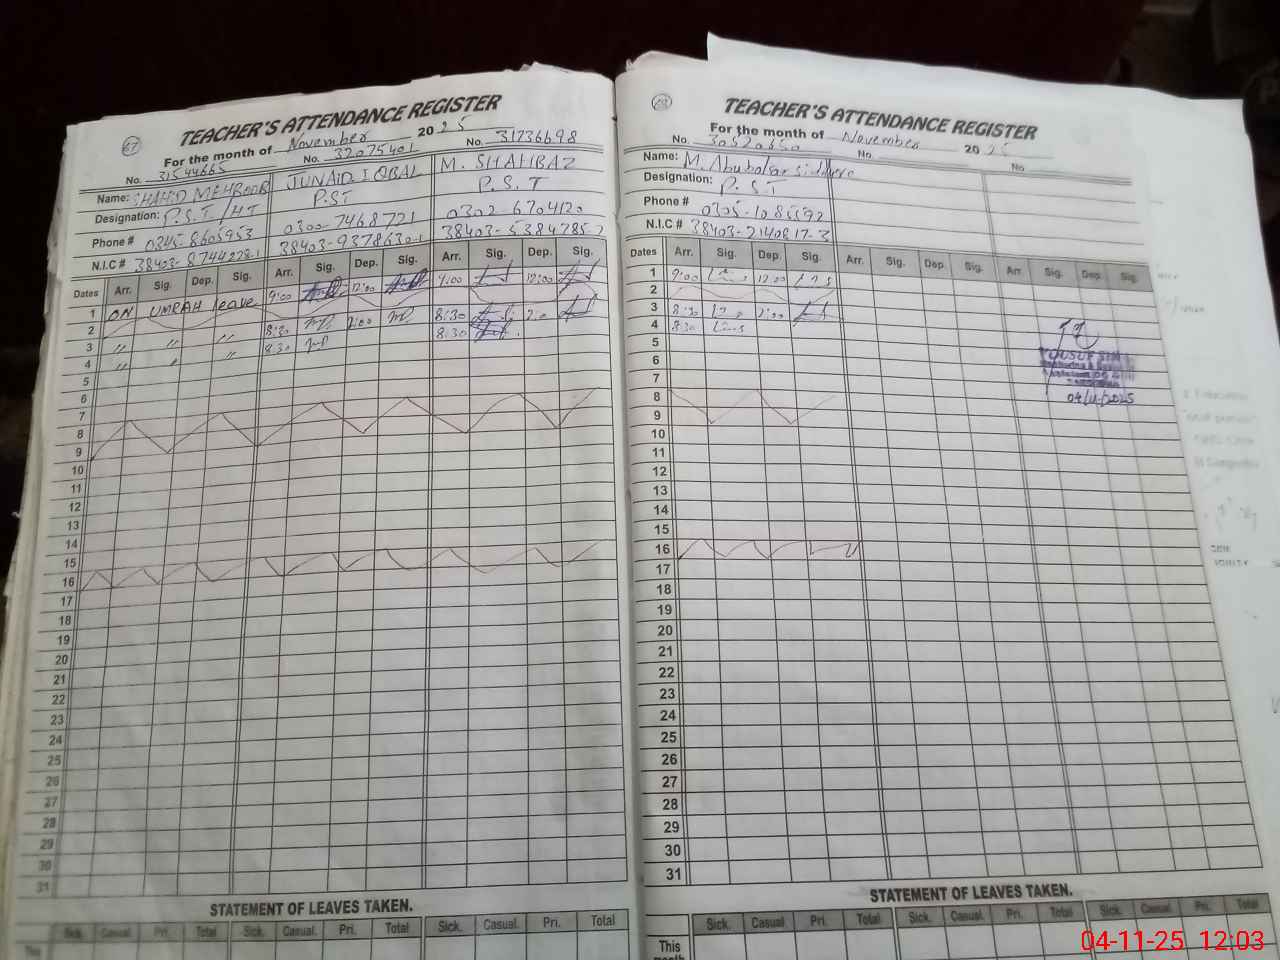 67
TEACHER'S ATTENDANCE REGISTER
For the month of November 2025
No. 31544665 No. 32075401 No. 31736698
Name: SHAHID MEHBOOB JUNAID IQBAL M. SHAHBAZ
Designation: P.S.T/HT PST P.S.T
Phone # 0345-8605953 0300-7468721 0302-6704120
N.I.C # 38403-8744228-1 38403-9378630-1 38403-5384785-7
Dates Arr. Sig. Dep. Sig. Arr. Sig. Dep. Sig. Arr. Sig. Dep. Sig.
1 ON UMRAH leave 9:00 12:00 9:00 12:00
2
3 〃 〃 〃 8:30 2:00 8:30 2:0
4 〃 〃 〃 8:30 8:30
5
6
7
8
9
10
11
12
13
14
15
16
17
18
19
20
21
22
23
24
25
26
27
28
29
30
31
STATEMENT OF LEAVES TAKEN.
Sick. Casual. Pri. Total Sick. Casual. Pri. Total Sick. Casual. Pri. Total
This
TEACHER'S ATTENDANCE REGISTER
For the month of November 2025
No. No. No.
Name: M. Abubakar
Designation: P.S.T
Phone # 0305-1085592
N.I.C # 38403-2140817-3
Dates Arr. Sig. Dep. Sig. Arr. Sig. Dep. Sig. Arr. Sig. Dep. Sig.
1 9:00 12:00
2
3 8:30 2:00
4 8:30
5
6
7
8
9
10
11
12
13
14
15
16
17
18
19
20
21
22
23
24
25
26
27
28
29
30
31
YOUSUF
04/11/2025
STATEMENT OF LEAVES TAKEN.
Sick. Casual. Pri. Total Sick. Casual. Pri. Total Sick. Casual. Pri. Total
This
month
04-11-25 12:03